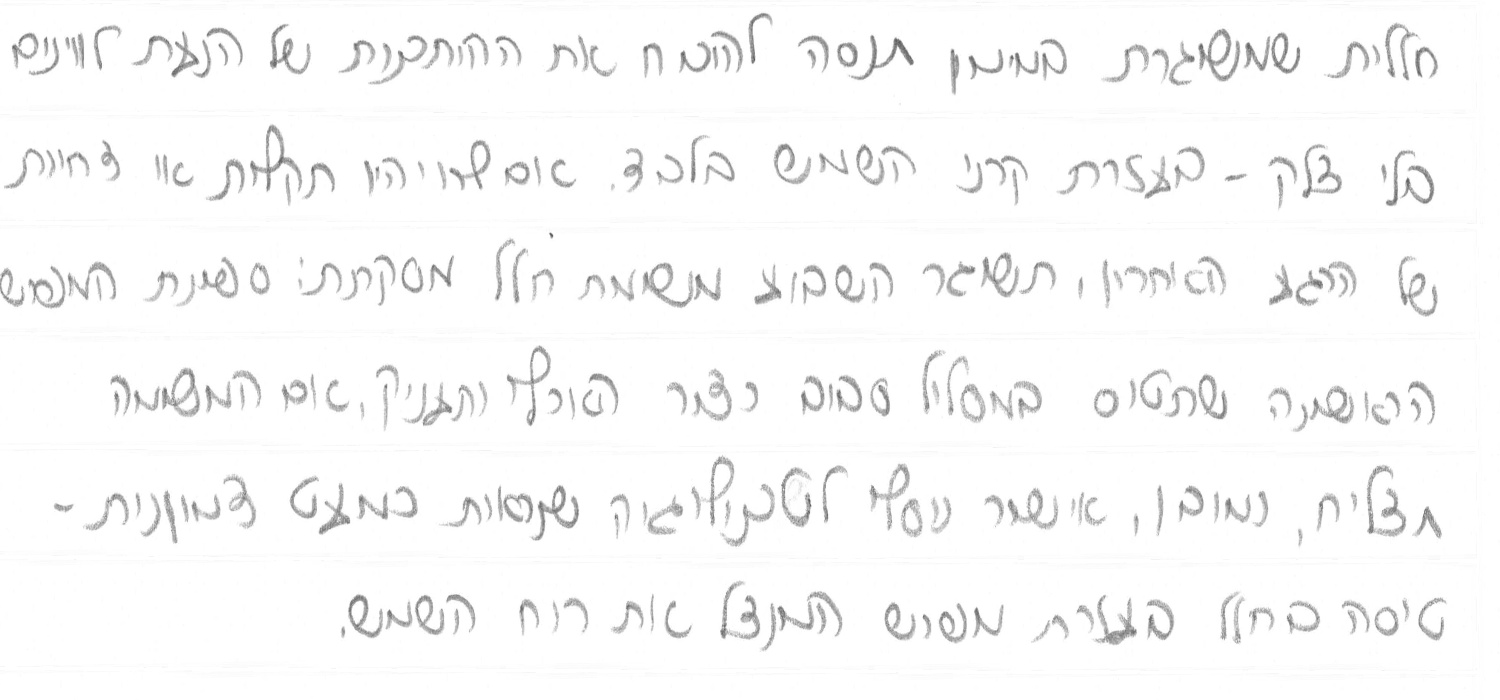 חללית שמשוגרת במימון תנסה להוכיח את ההיתכנות של הנעת לוויינים
בלי דלק - בעזרת קרני השמש בלבד. אם לא יהיו תקלות או דחיות
של הרגע האחרון, תשוגר השבוע משימת חלל מסקרנת: ספינת המפרש
הראשונה שתטוס במסלול סביב כדור הארץ ותעניק, אם המשימה
תצליח, כמובן, אישור נוסף לטכנולוגיה שנראית כמעט דמיונית -
טיסה בחלל בעזרת מפרש המנצל את רוח השמש.